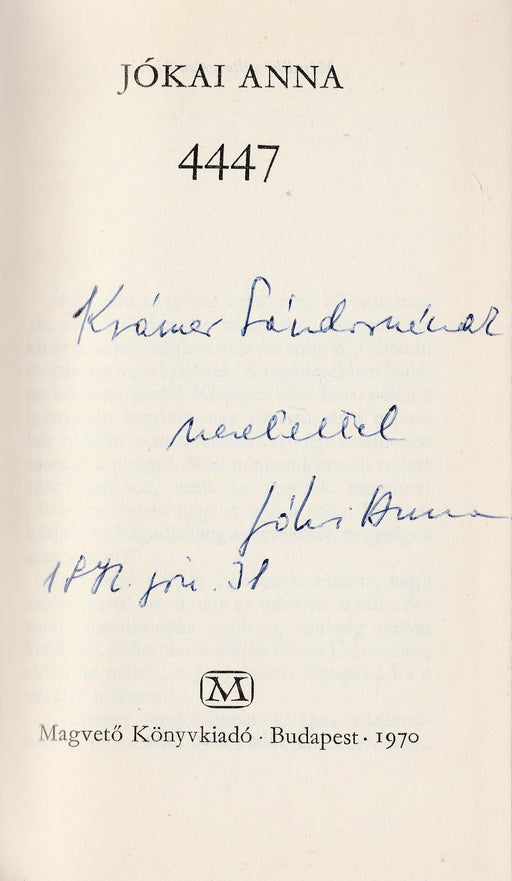 JÓKAI ANNA
4447
Krámer Sándornénak
szeretettel
Jókai Anna
M
Magvető Könyvkiadó · Budapest · 1970